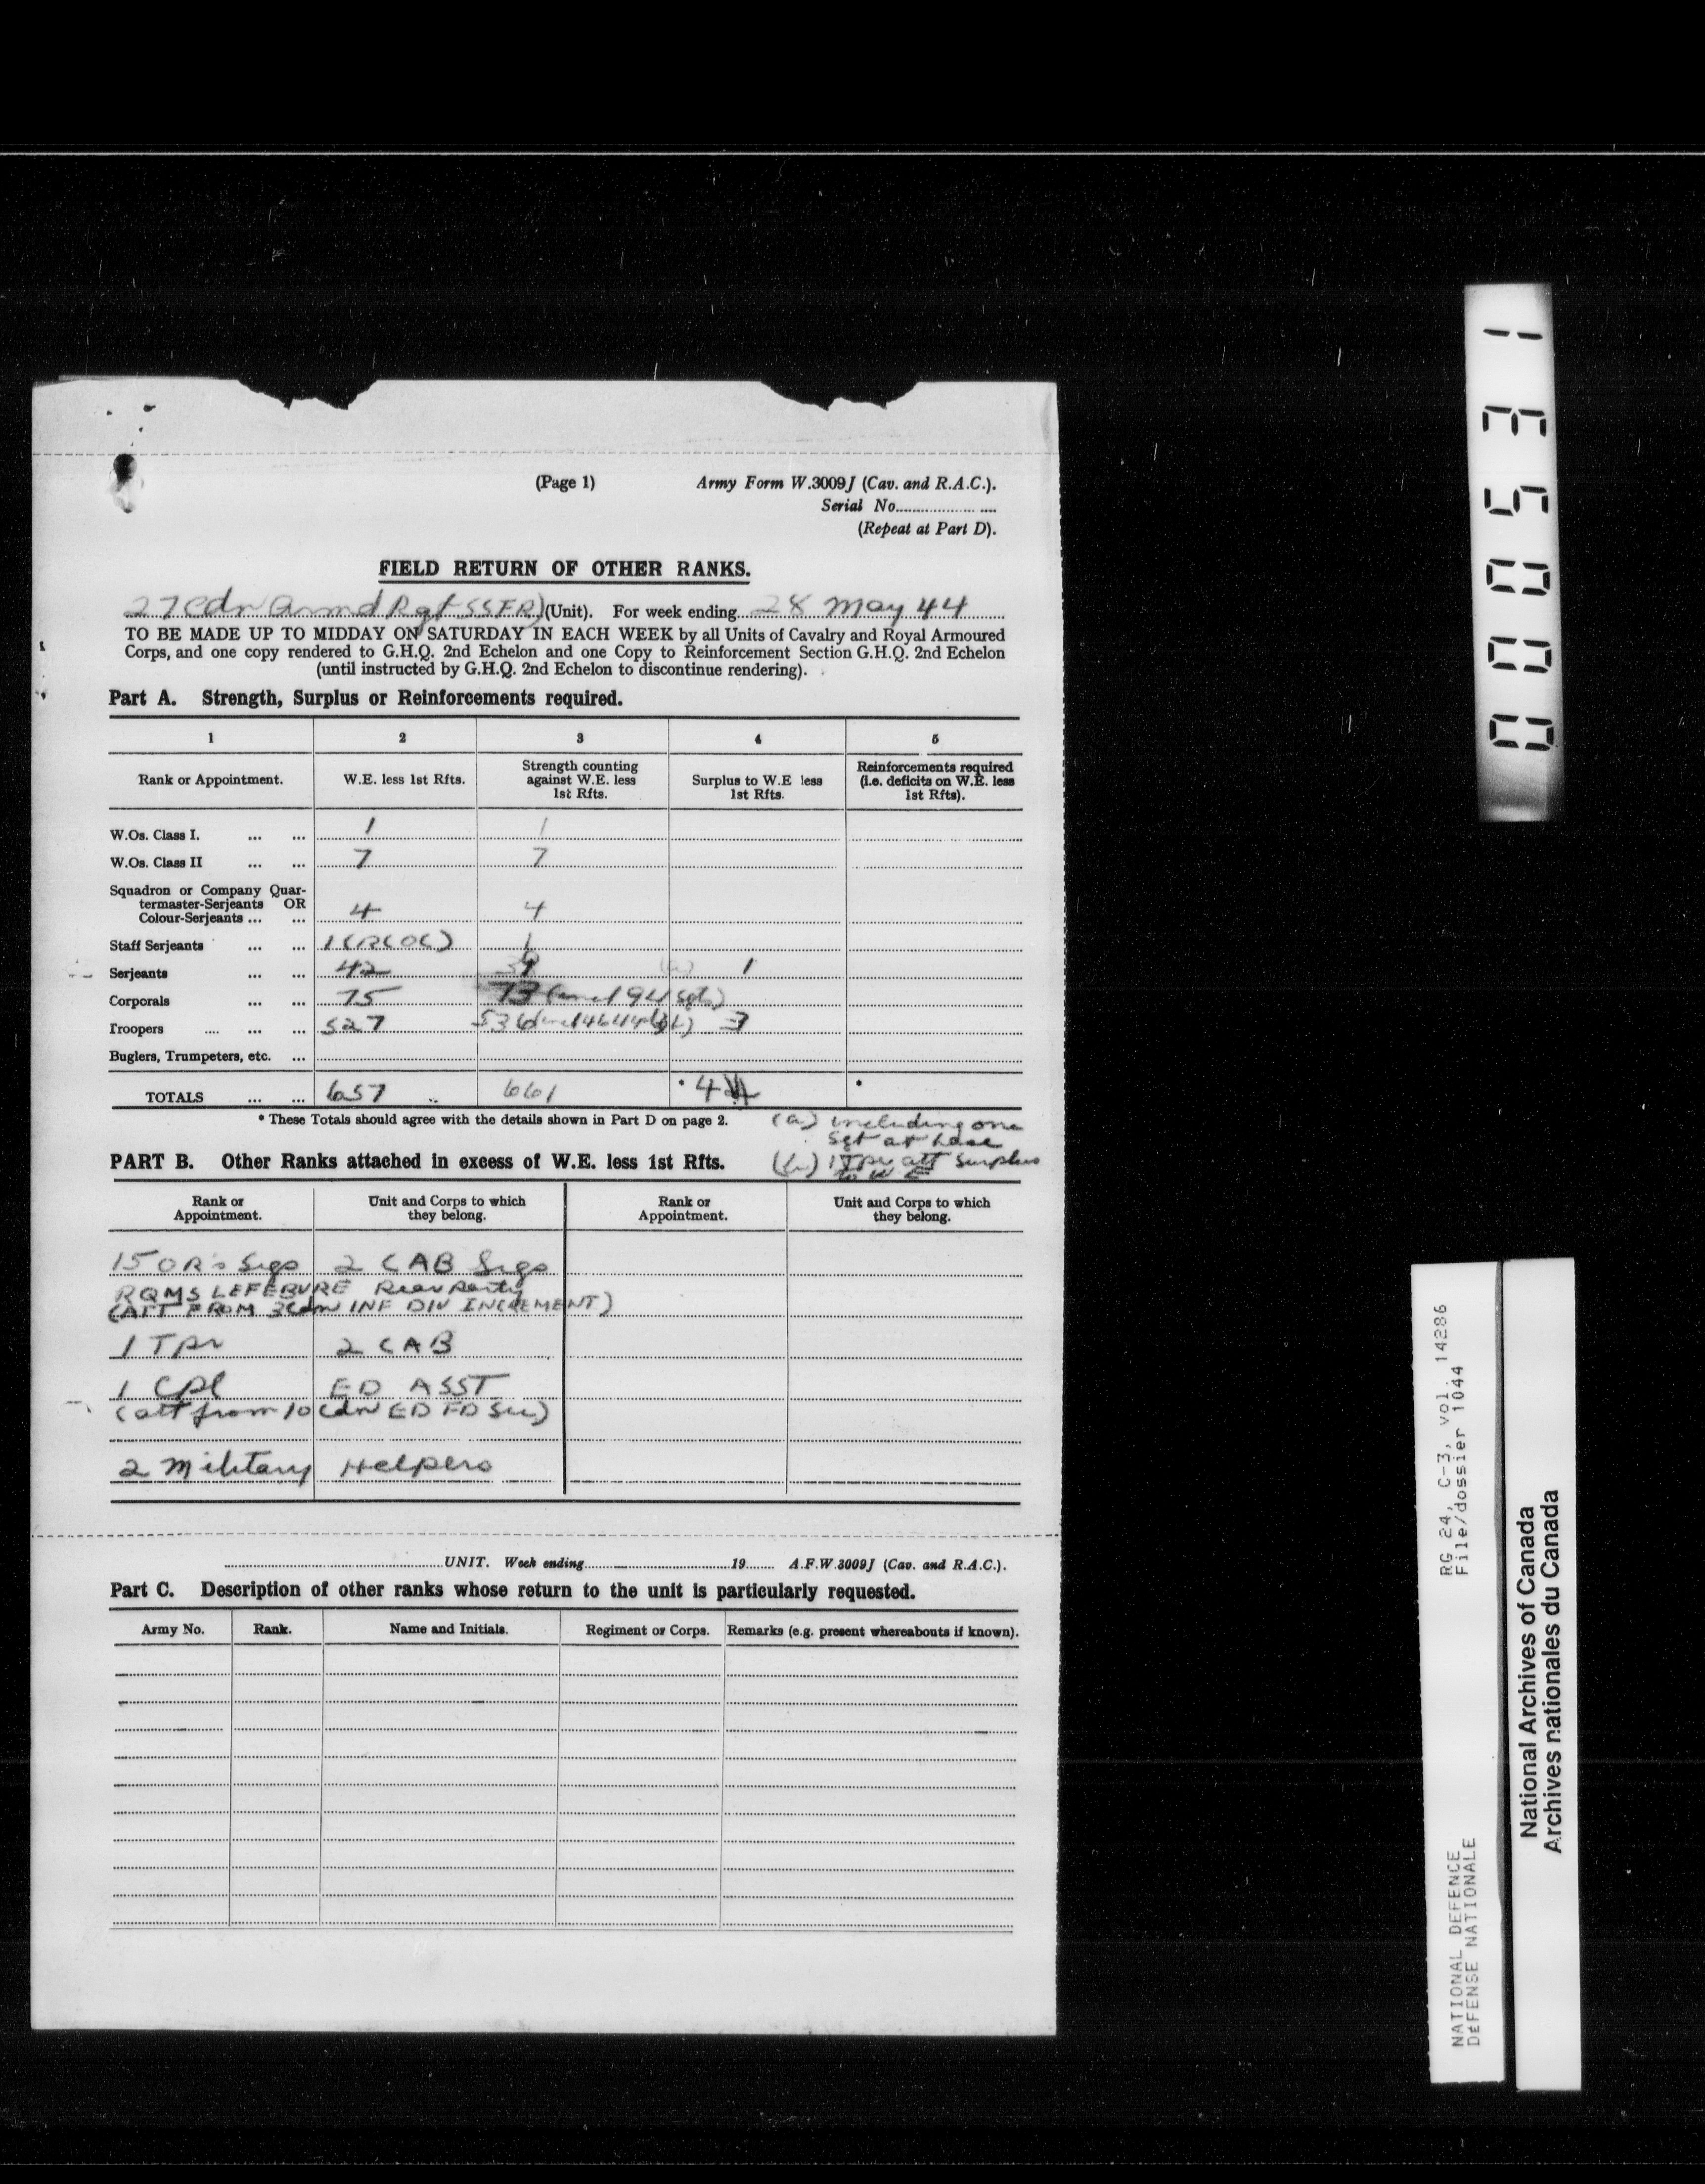 (Page 1)
Army Form W.3009J (Cav. and R.A.C.).
Serial No.
(Repeat at Part D).
FIELD RETURN OF OTHER RANKS.
27 Cdn Armd Rgt SSFR) (Unit). For week ending 28 May 44
TO BE MADE UP TO MIDDAY ON SATURDAY IN EACH WEEK by all Units of Cavalry and Royal Armoured
Corps, and one copy rendered to G.H.Q. 2nd Echelon and one Copy to Reinforcement Section G.H.Q. 2nd Echelon
(until instructed by G.H.Q. 2nd Echelon to discontinue rendering).
Part A. Strength, Surplus or Reinforcements required.
1 2 3 4 5
Rank or Appointment.
W.E. less 1st Rfts.
Strength counting
against W.E. less
1st Rfts.
Surplus to W.E less
1st Rfts.
Reinforcements required
(i.e. deficits on W.E. less
1st Rfts).
W.Os. Class I. ... ... 1 1
W.Os. Class II ... ... 7 7
Squadron or Company Quar-
termaster-Serjeants OR
Colour-Serjeants ... ... 4 4
Staff Serjeants ... ... 1 (RCOC) 1
Serjeants ... ... 42 (a) 1
Corporals ... ... 75 73
Troopers .... ... ... 527 536 3
Buglers, Trumpeters, etc. ...
TOTALS ... ... 657 661 * 4 *
* These Totals should agree with the details shown in Part D on page 2.
(a) including one
Sgt at base
(b) 1 Tpr att surplus
to W E
PART B. Other Ranks attached in excess of W.E. less 1st Rfts.
Rank or
Appointment.
Unit and Corps to which
they belong.
Rank or
Appointment.
Unit and Corps to which
they belong.
15 OR's Sigs 2 CAB Sigs
RQMS LEFEBVRE Rear Party
(ATT FROM 3 Cdn INF DIV INCREMENT)
1 Tpr 2 CAB
1 Cpl ED ASST
(att from 10 Cdn ED FD Sec)
2 Military Helpers
UNIT. Week ending 19 A.F.W.3009J (Cav. and R.A.C.).
Part C. Description of other ranks whose return to the unit is particularly requested.
Army No. Rank. Name and Initials. Regiment or Corps. Remarks (e.g. present whereabouts if known).
000531
RG 24, C-3, vol. 14286
File/dossier 1044
NATIONAL DEFENCE
DÉFENSE NATIONALE
National Archives of Canada
Archives nationales du Canada